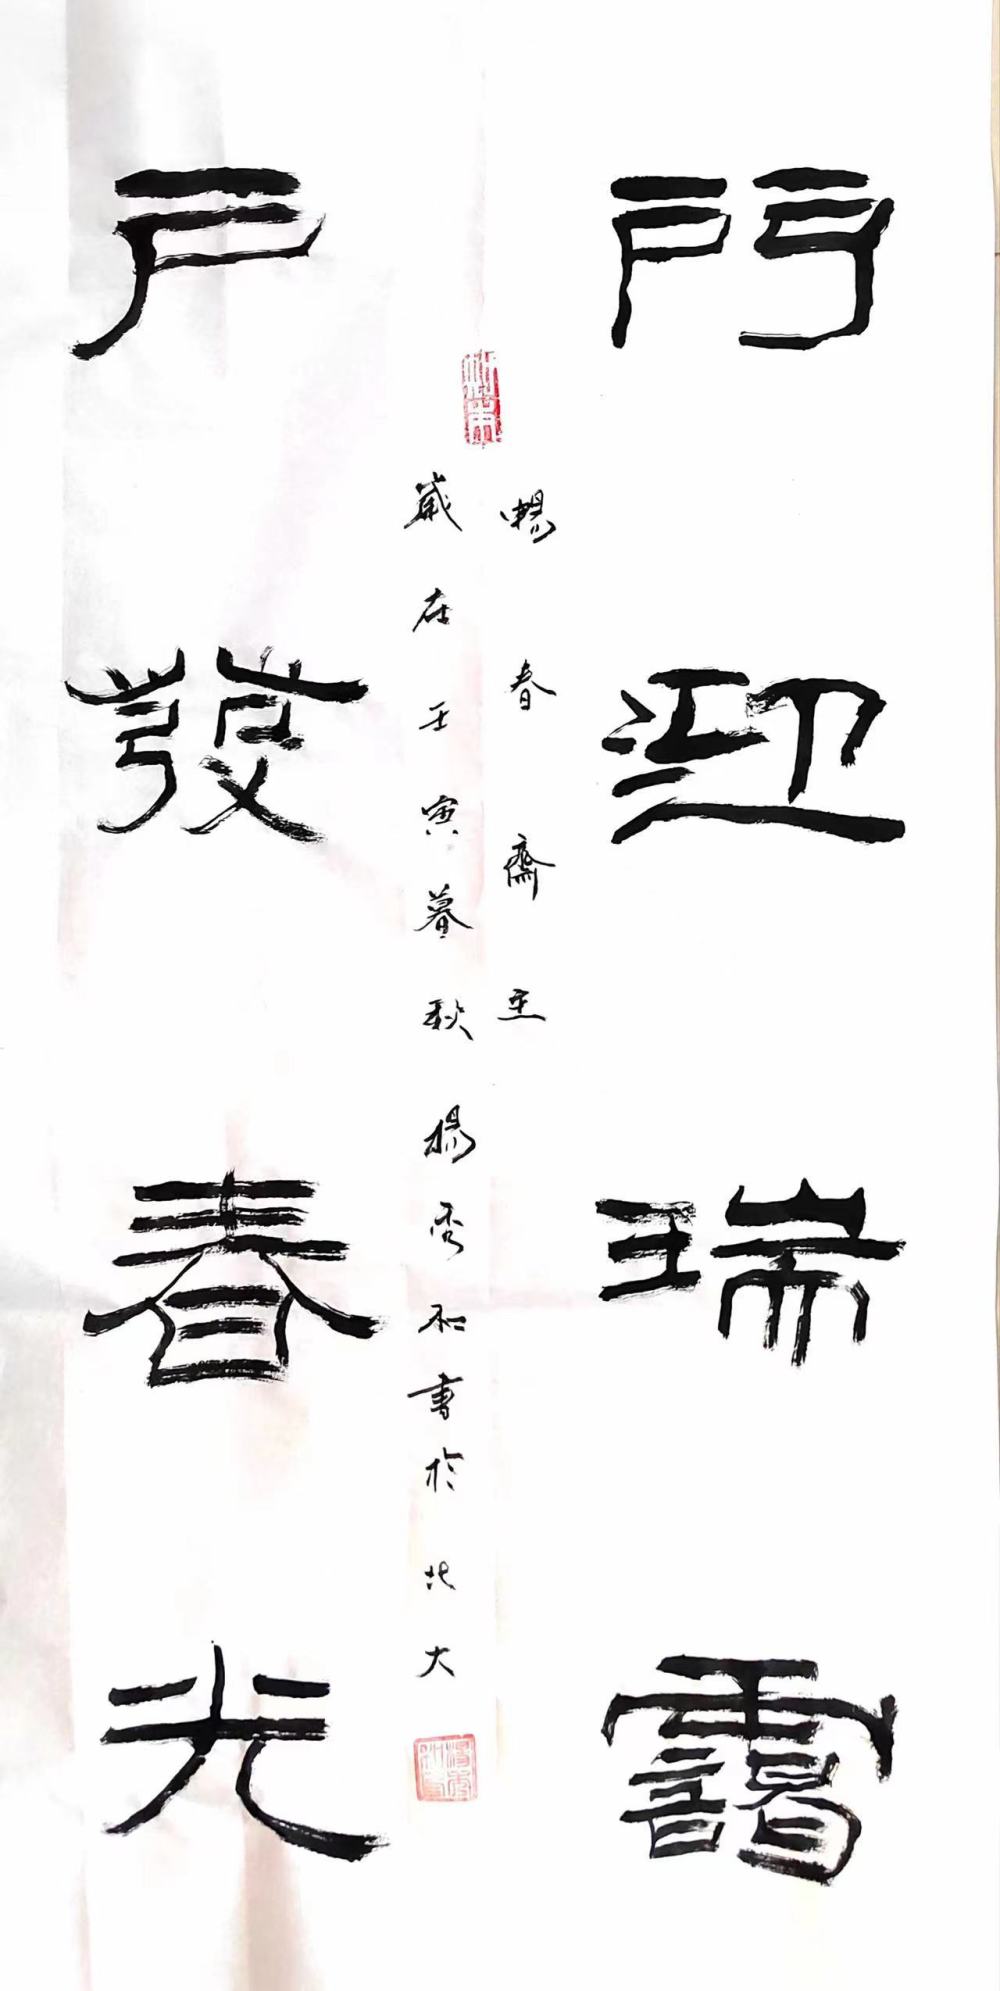 門迎瑞靄
戶發春光
暢春齋主
歲在壬寅暮秋楊秀和書於北大